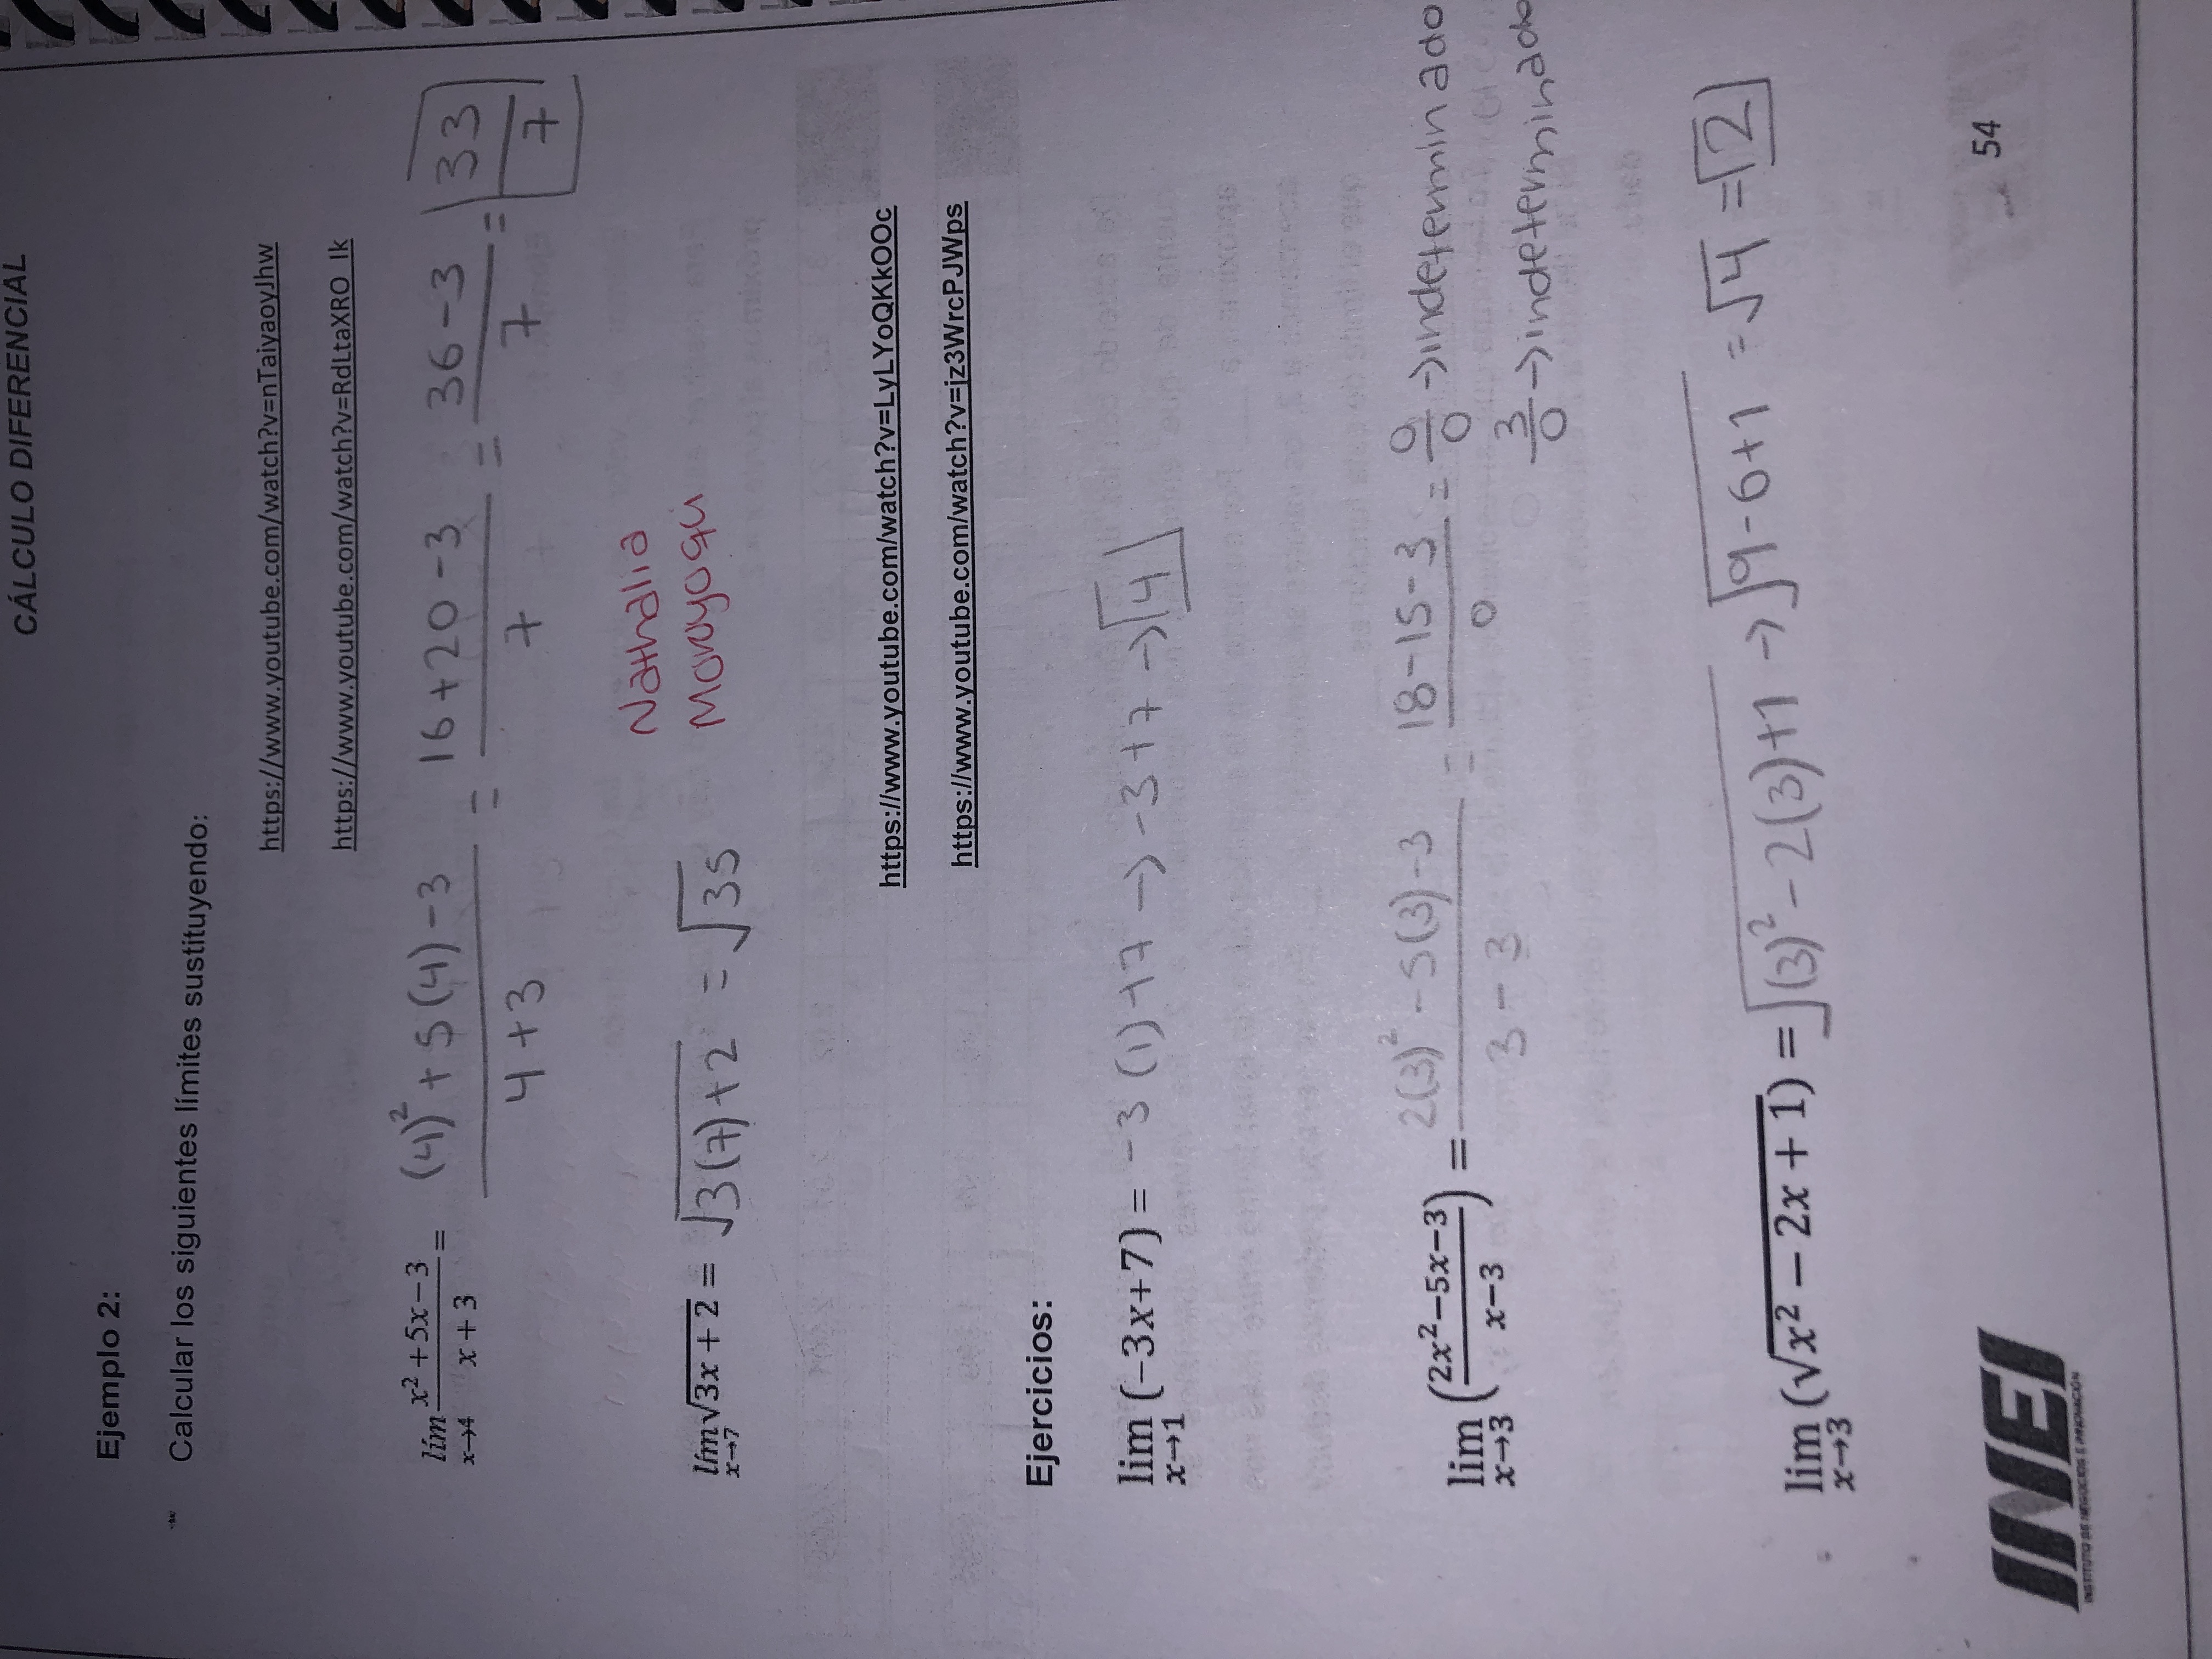 CÁLCULO DIFERENCIAL
Ejemplo 2:
Calcular los siguientes límites sustituyendo:
https://www.youtube.com/watch?v=nTaiyaoyJhw
https://www.youtube.com/watch?v=RdLtaXRO_Ik
lím x→4 (x²+5x−3)/(x+3) = ((4)²+5(4)−3)/(4+3) = (16+20−3)/7 = (36−3)/7 = 33/7
Nathalia
lím x→7 √(3x+2) = √(3(7)+2) = √35
https://www.youtube.com/watch?v=LyLYoQKkOOc
https://www.youtube.com/watch?v=jz3WrcPJWps
Ejercicios:
lim x→1 (−3x+7) = −3(1)+7 → −3+7 → 4
lim x→3 ((2x²−5x−3)/(x−3)) = (2(3)²−5(3)−3)/(3−3) = (18−15−3)/0 = 0/0 → indeterminado
3/0 → indeterminado
lim x→3 (√(x²−2x+1)) = √((3)²−2(3)+1) → √(9−6+1) = √4 = 2
INEI
INSTITUTO DE NEGOCIOS E INNOVACIÓN
54